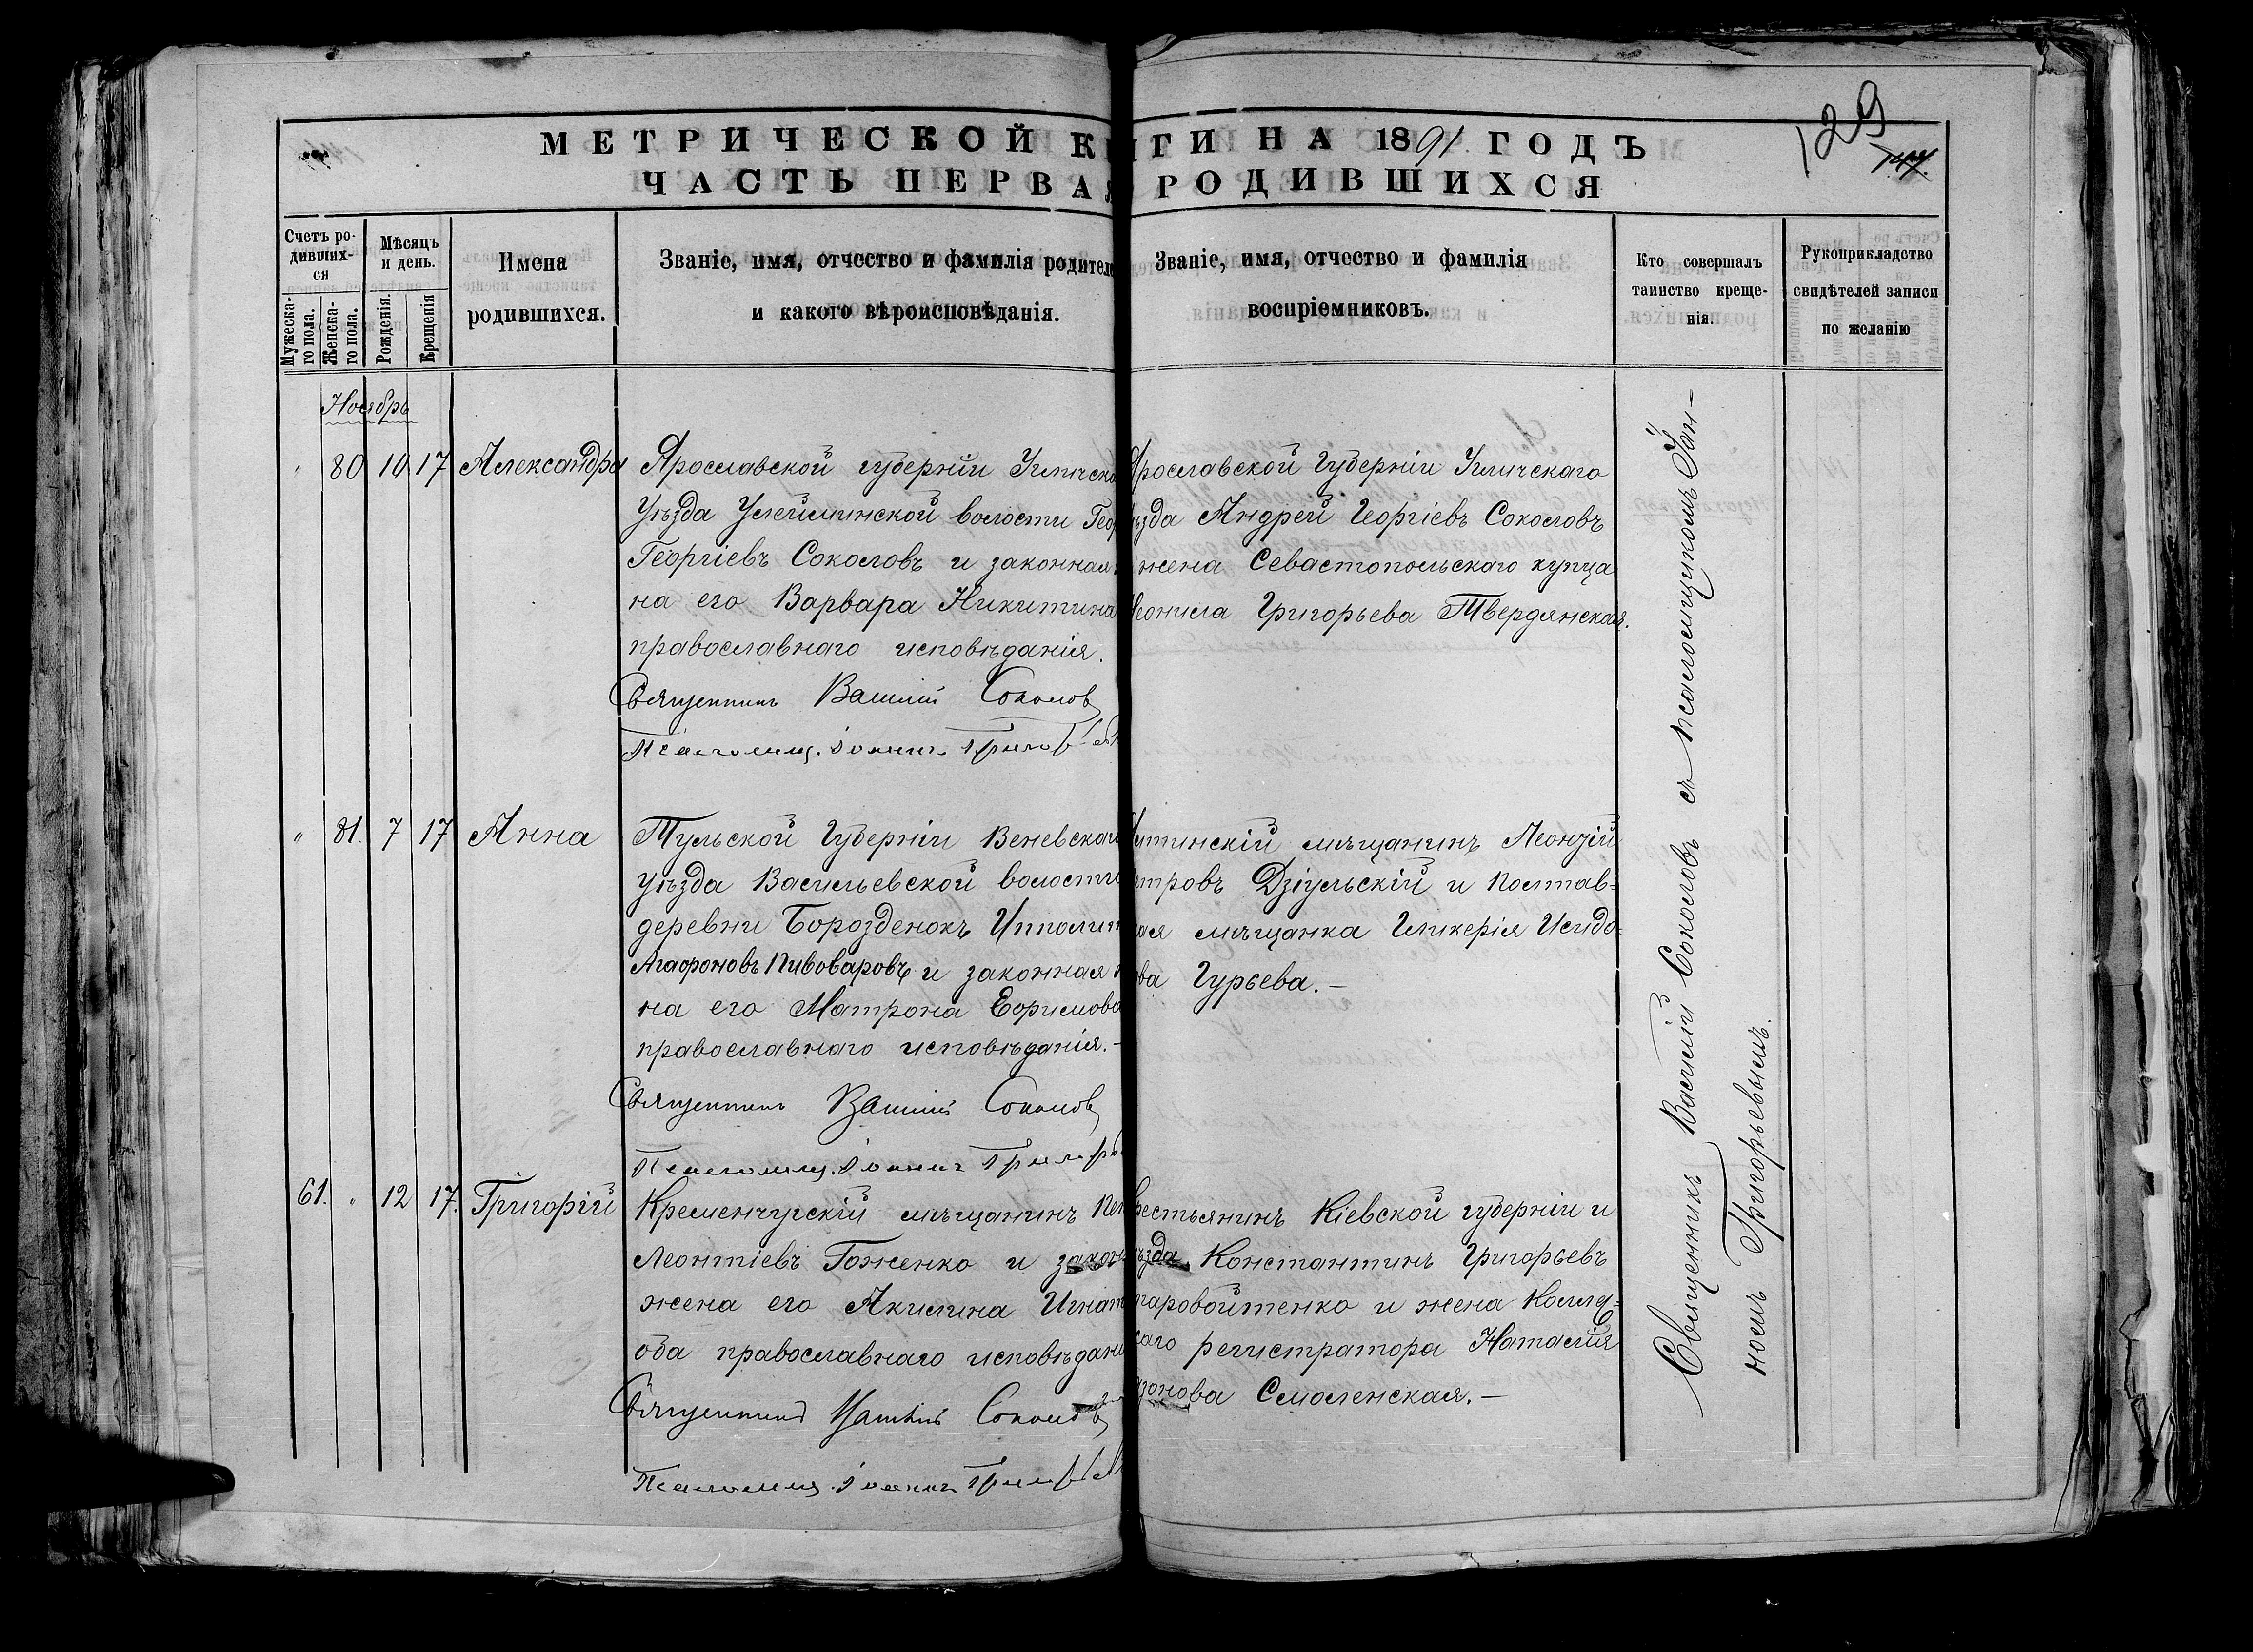 МЕТРИЧЕСКОЙ К НГИ НА 1891 ГОДЪ
129
ЧАСТЬ ПЕРВАЯ РОДИВШИХСЯ
Счетъ ро-
дивших-
ся
Мужеска-
го пола.
Женска-
го пола.
Мѣсяцъ
и день.
Рожденія.
Крещенія
Имена
родившихся.
Званіе, имя, отчество и фамилія родителе
и какого вѣроисповѣданія.
Званіе, имя, отчество и фамилія
воспріемниковъ.
Кто совершалъ
таинство креще-
нія.
Рукоприкладство
свидѣтелей записи
по желанію
Ноябрь
" 80 10 17 Александра
Ярославской губерніи Угличска
Уѣзда Улейминской волости Гео
Георгіевъ Соколовъ и законная
на его Варвара Никитина
православнаго исповѣданія.
Священникъ Василій Соколовъ
Псаломщ. Іоаннъ Григорьев
Ярославской Губерніи Угличскаго
ѣзда Андрей Георгіевъ Соколовъ
жена Севастопольскаго купца
Леонила Григорьева Твердянская.
" 81. 7 17 Анна
Тульской Губерніи Веневскаго
уѣзда Васильевской волости
деревни Борозденокъ Ипполит
Агафоновъ Пивоваровъ и законная ж
на его Матрона Ефимова
православнаго исповѣданія.-
Священникъ Василій Соколовъ
Псаломщ. Іоаннъ Григорь
лтинскій мѣщанинъ Леонтій
етровъ Дзіульскій и Полтав-
кая мѣщанка Гликерія Исидо-
ова Гурьева.-
61. " 12 17. Григорій
Кременчугскій мѣщанинъ Пет
Леонтіевъ Гоженко и закон
жена его Акилина Игнат
оба православнаго исповѣдані
Священникъ Василій Соколовъ
Псаломщ. Іоаннъ Григорьев
рестьянинъ Кіевской губерніи и
ѣзда Константинъ Григорьевъ
таровойтенко и жена Коллеж-
каго регистратора Наталія
зонова Смоленская.-
Священникъ Василій Соколовъ съ псаломщикомъ Іоан-
номъ Григорьевымъ.